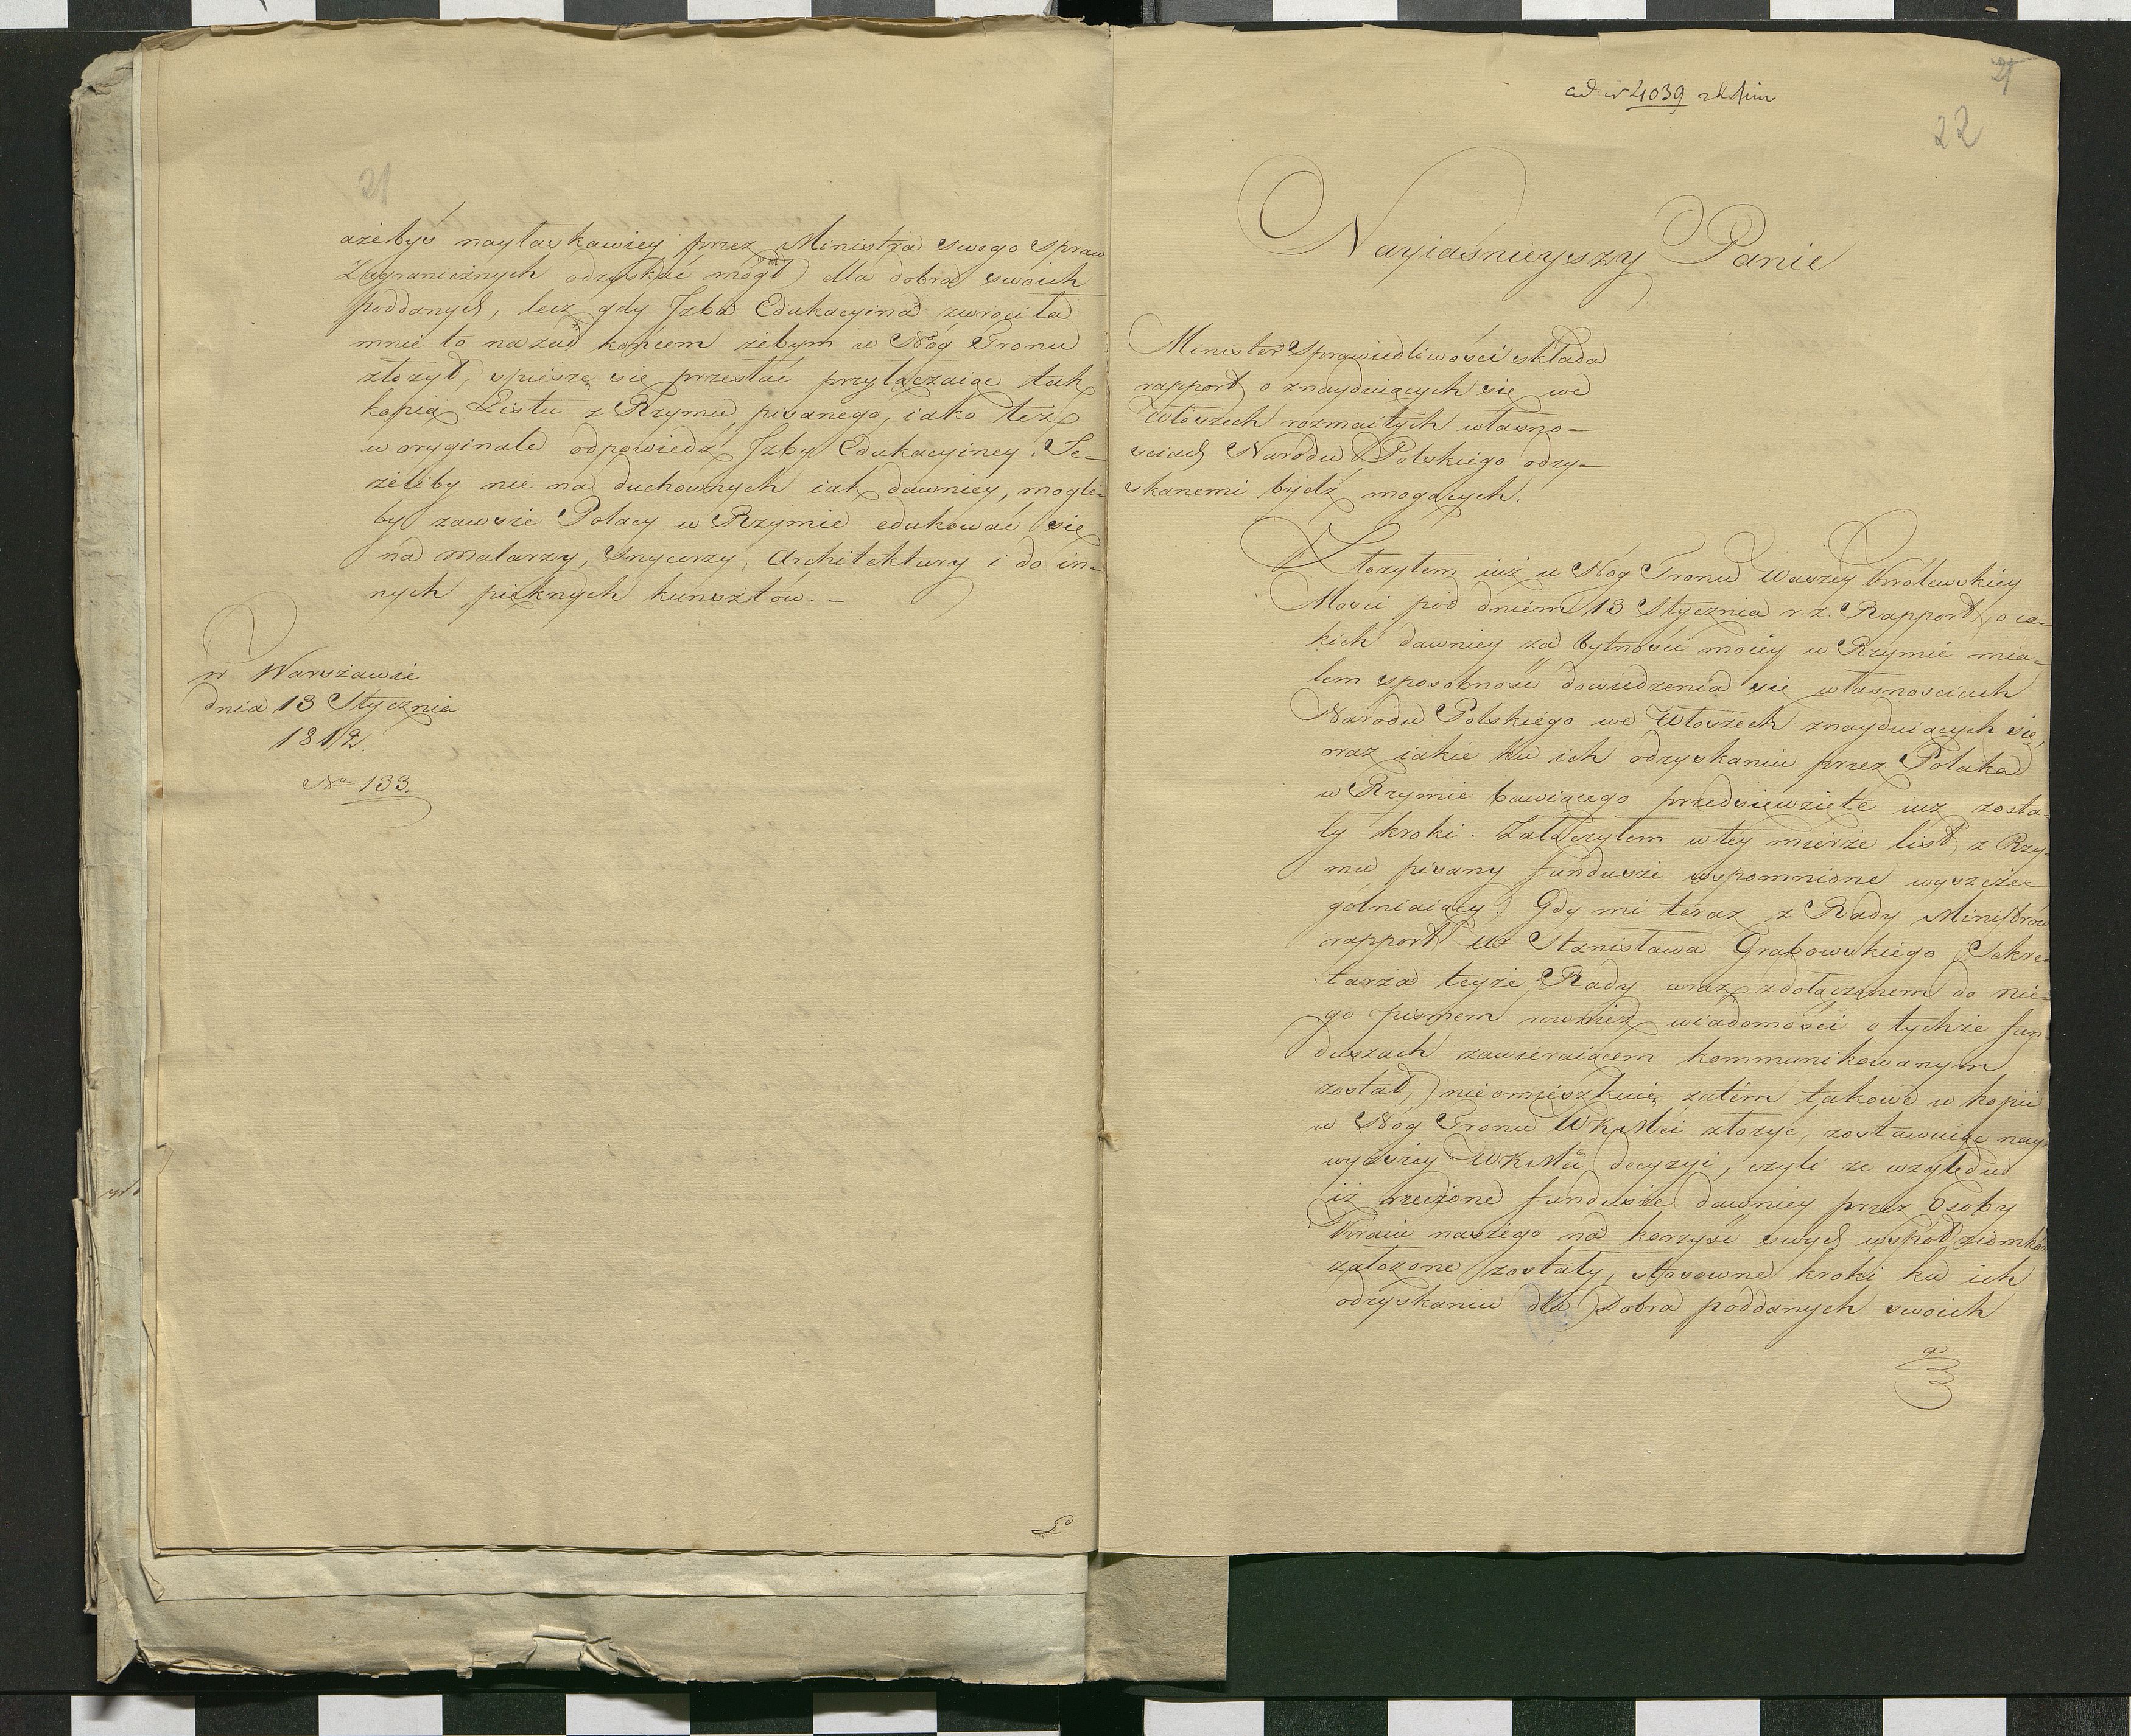 21
ażebyś nayłaskawiey przez Ministra swego Spraw
Zagranicznych odzyskać mógł dla dobra swoich
poddanych, lecz gdy Jzba Edukacyina zwróciła
mnie to nazad końcem żebym u Nóg Tronu
złożył, spieszę się przesłać przyłączaiąc tak
kopią Listu z Rzymu pisanego, iako też
w oryginale odpowiedź Jzby Edukacyiney. Je-
żeliby nie na duchownych iak dawniey, mogli-
by zawsze Polacy w Rzymie edukować się
na malarzy, Snycerzy, Architektury i do in-
nych pięknych kunsztów. –
w Warszawie
dnia 13 Stycznia
1812.
No 133.
21
ad N 4039
22
Nayiaśnieyszy Panie
Minister Sprawiedliwości składa
rapport o znayduiących się we
Włoszech rozmaitych własno-
ściach Narodu Polskiego odzy-
skanemi bydź mogących.
Złożyłem iuż u Nóg Tronu Waszey Królewskiey
Mości pod dniem 13 Stycznia r. z. Rapport, o ia-
kich dawniey za bytności moiey w Rzymie mia-
łem sposobność dowiedzenia się własnościach
Narodu Polskiego we Włoszech znayduiących się,
oraz iakie ku ich odzyskaniu przez Polaka
w Rzymie bawiącego przedsięwzięte iuż zosta-
ły kroki. Załączyłem w tey mierze list z Rzy-
mu pisany fundusze wspomnione wyszcze-
gólniaiący. Gdy mi teraz z Rady Ministrów
rapport Ur Stanisława Grabowskiego Sekre-
tarza teyże Rady wraz z dołączonem do nie-
go pismem również wiadomości o tychże fun-
duszach zawieraiącem kommunikowanym
został, nieomieszkuię zatem takowe w kopii
u Nóg Tronu WKMci złożyć, zostawuiąc nay-
wyższey WKMci decyzyi, czyli ze względu
iż rzeczone fundusze dawniey przez Osoby
Kraiu naszego na korzyść swych współziomków
założone zostały, stosowne kroki ku ich
odzyskaniu dla Dobra poddanych swoich